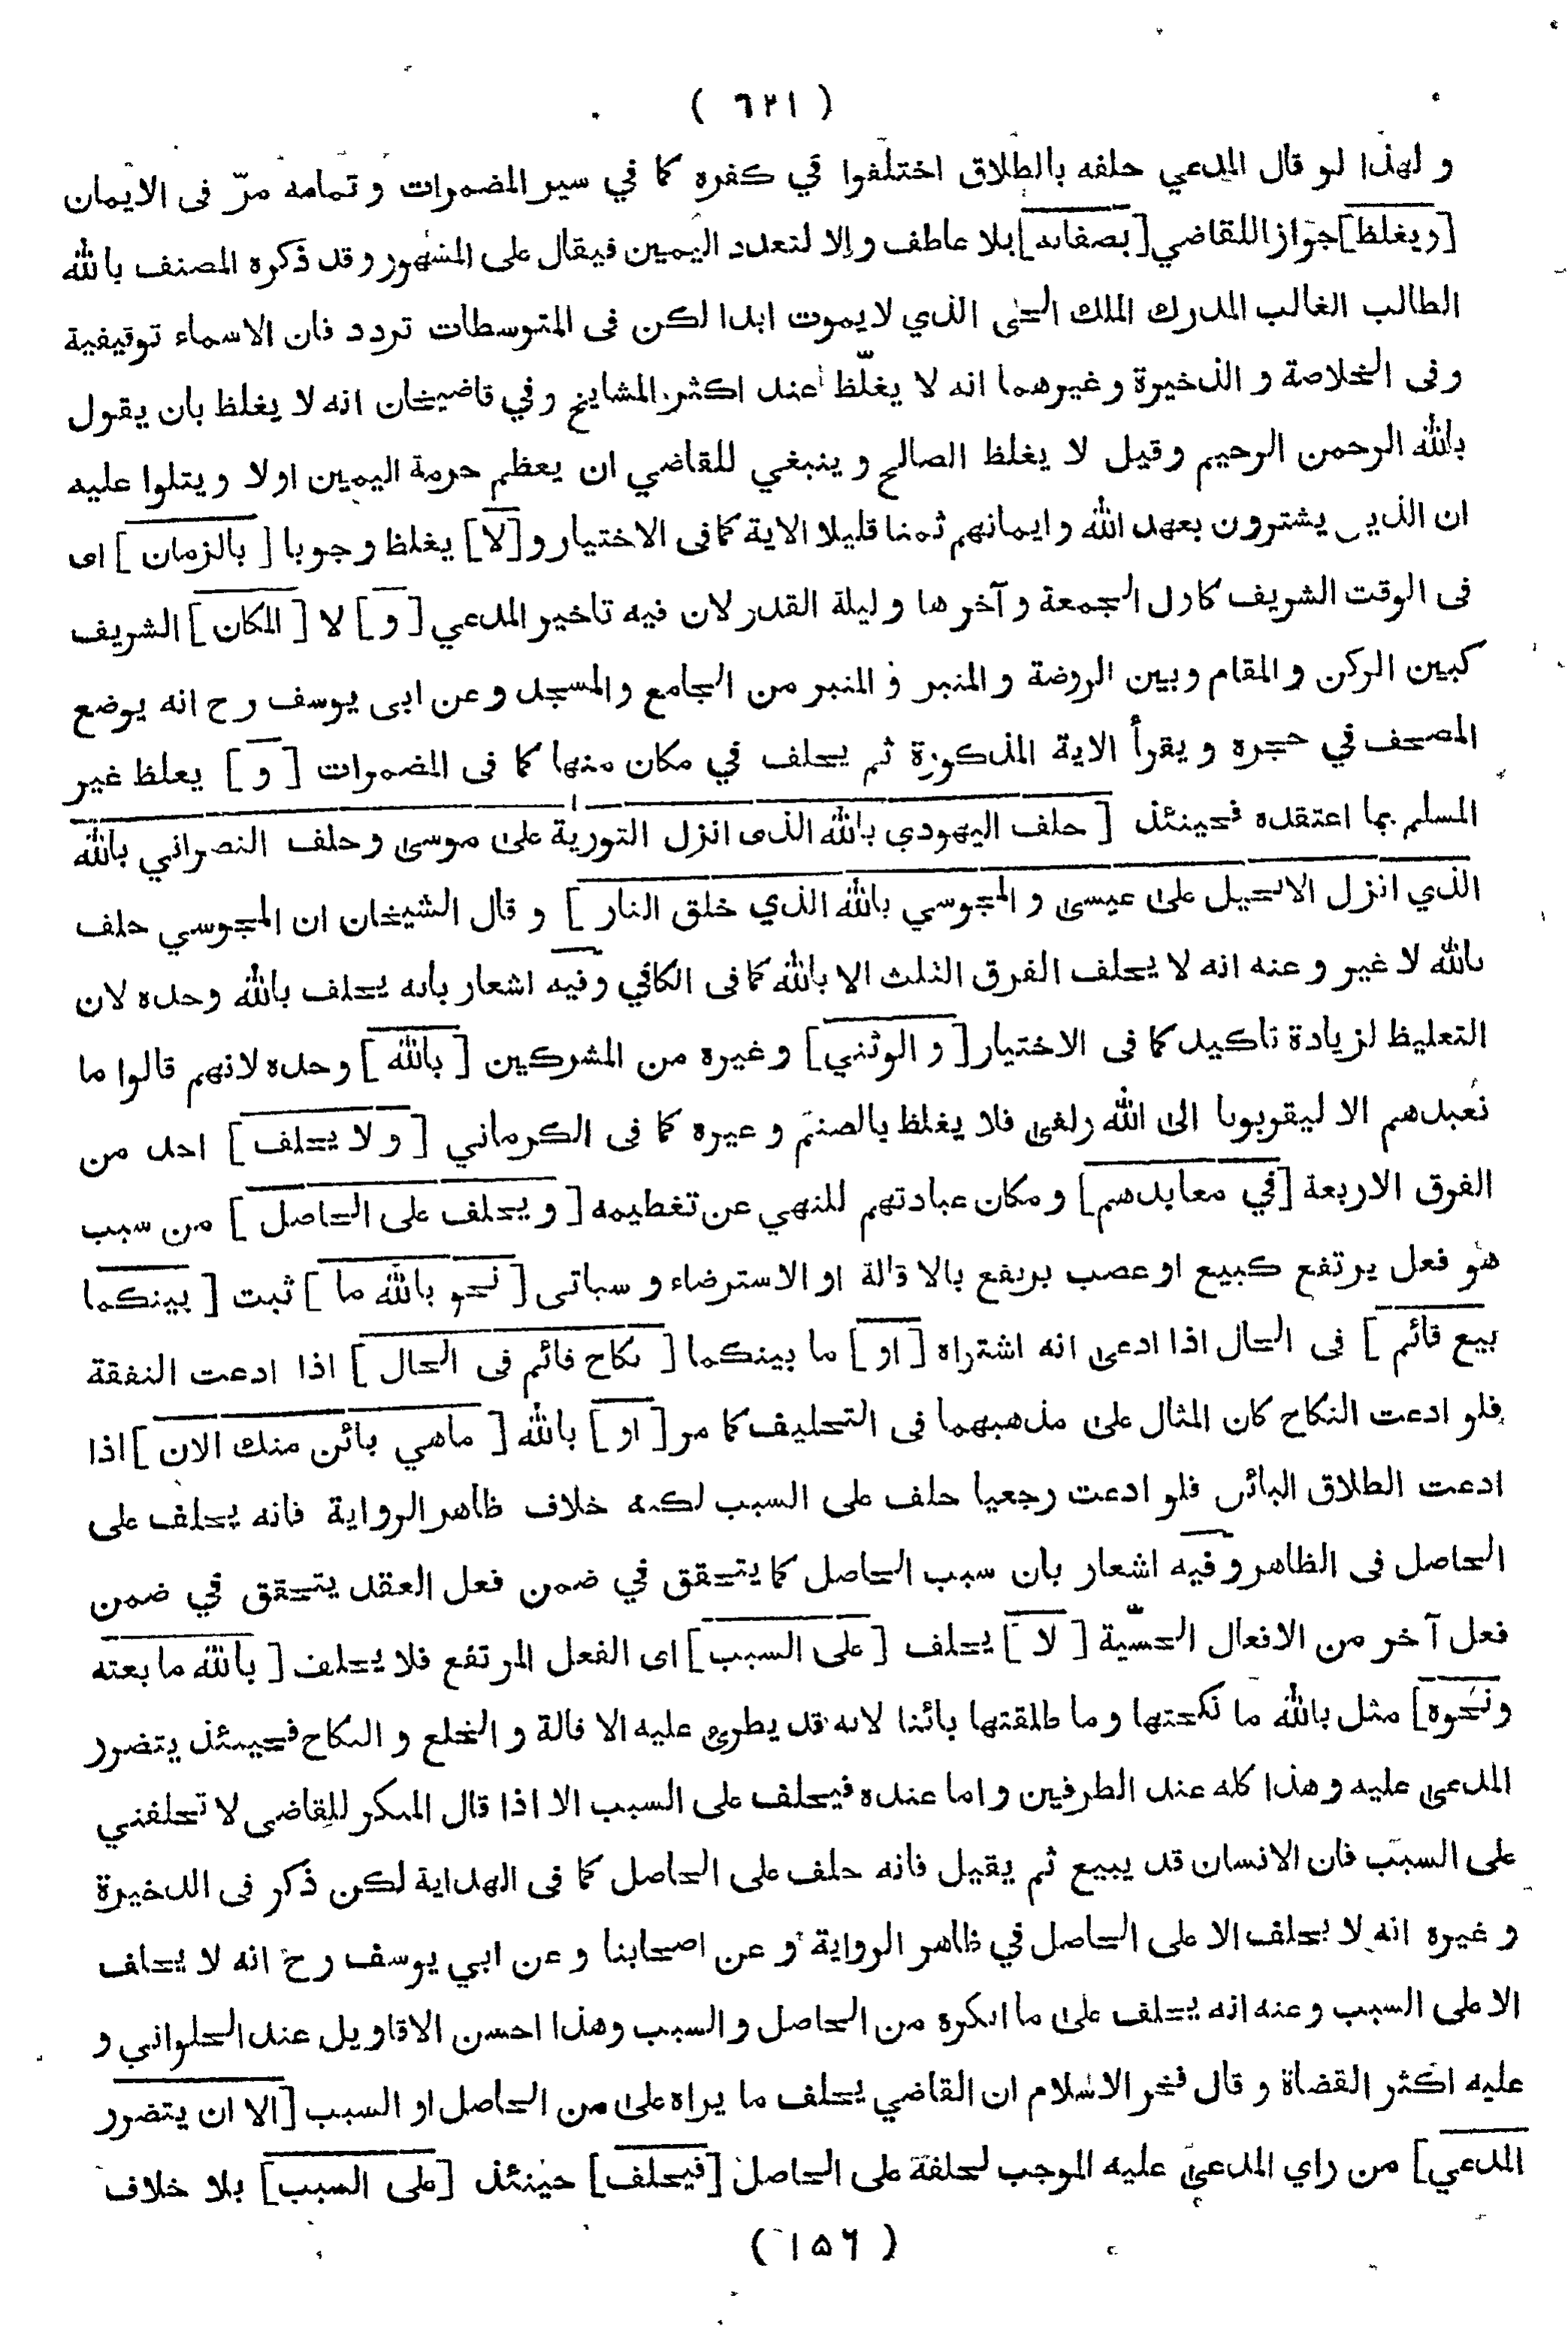 ( ٦٢١ )
و لهذا لو قال المدعي حلفه بالطلاق اختلفوا في كفره كما في سير المضمرات و تمامه مرّ فى الايمان
[ويغلظ] جوازا للقاضي [بصفاته] بلا عاطف و إلا لتعدد اليمين فيقال على المشهور و قد ذكره المصنف بالله
الطالب الغالب المدرك الملك الحى الذي لا يموت ابدا لكن فى المتوسطات تردد فان الاسماء توقيفية
وفى الخلاصة و الذخيرة و غيرهما انه لا يغلّظ عند اكثر المشايخ و في قاضيخان انه لا يغلظ بان يقول
بالله الرحمن الرحيم و قيل لا يغلظ الصالح و ينبغي للقاضي ان يعظم حرمة اليمين اولا و يتلوا عليه
ان الذين يشترون بعهد الله و ايمانهم ثمنا قليلا الاية كما فى الاختيار و [لا] يغلظ وجوبا [ بالزمان ] اى
فى الوقت الشريف كاول الجمعة و آخرها و ليلة القدر لان فيه تاخير المدعي [ و ] لا [ المكان ] الشريف
كبين الركن و المقام و بين الروضة و المنبر و المنبر من الجامع و المسجد و عن ابى يوسف رح انه يوضع
المصحف في حجره و يقرأ الاية المذكورة ثم يحلف في مكان منها كما فى المضمرات [ و ] يعلظ غير
المسلم بما اعتقده فحينئذ [ حلف اليهودي بالله الذى انزل التورية على موسى و حلف النصراني بالله
الذي انزل الانجيل على عيسى و المجوسي بالله الذي خلق النار ] و قال الشيخان ان المجوسي حلف
بالله لا غير و عنه انه لا يحلف الفرق الثلث الا بالله كما فى الكافي و فيه اشعار بانه يحلف بالله وحده لان
التغليظ لزيادة تاكيد كما فى الاختيار [ و الوثني ] و غيره من المشركين [ بالله ] وحده لانهم قالوا ما
نعبدهم الا ليقربونا الى الله زلفى فلا يغلظ بالصنم و غيره كما فى الكرماني [ و لا يحلف ] احد من
الفرق الاربعة [ في معابدهم ] و مكان عبادتهم للنهي عن تغظيمه [ و يحلف على الحاصل ] من سبب
هو فعل يرتفع كبيع او غصب يرتفع بالاقالة او الاسترضاء و سياتى [ نحو بالله ما ] ثبت [ بينكما
بيع قائم ] فى الحال اذا ادعى انه اشتراه [ او ] ما بينكما [ نكاح قائم فى الحال ] اذا ادعت النفقة
فلو ادعت النكاح كان المثال على مذهبهما فى التحليف كما مر [ او ] بالله [ ماهي بائن منك الان ] اذا
ادعت الطلاق البائن فلو ادعت رجعيا حلف على السبب لكنه خلاف ظاهر الرواية فانه يحلف على
الحاصل فى الظاهر و فيه اشعار بان سبب الحاصل كما يتحقق في ضمن فعل العقد يتحقق في ضمن
فعل آخر من الافعال الحسّية [ لا ] يحلف [ على السبب ] اى الفعل المرتفع فلا يحلف [ بالله ما بعته
ونحوه ] مثل بالله ما نكحتها و ما طلقتها بائنا لانه قد يطرئ عليه الاقالة و الخلع و النكاح فحينئذ يتضرر
المدعى عليه و هذا كله عند الطرفين و اما عنده فيحلف على السبب الا اذا قال المنكر للقاضى لا تحلفني
على السبب فان الانسان قد يبيع ثم يقيل فانه حلف على الحاصل كما فى الهداية لكن ذكر فى الذخيرة
و غيره انه لا يحلف الا على الحاصل في ظاهر الرواية و عن اصحابنا و عن ابي يوسف رح انه لا يحلف
الا على السبب و عنه انه يحلف على ما انكره من الحاصل و السبب وهذا احسن الاقاويل عند الحلواني و
عليه اكثر القضاة و قال فخر الاسلام ان القاضي يحلف ما يراه على من الحاصل او السبب [ الا ان يتضرر
المدعي ] من راي المدعى عليه الموجب لحلفة على الحاصل [ فيحلف ] حينئذ [ على السبب ] بلا خلاف
( ١٥٦ )